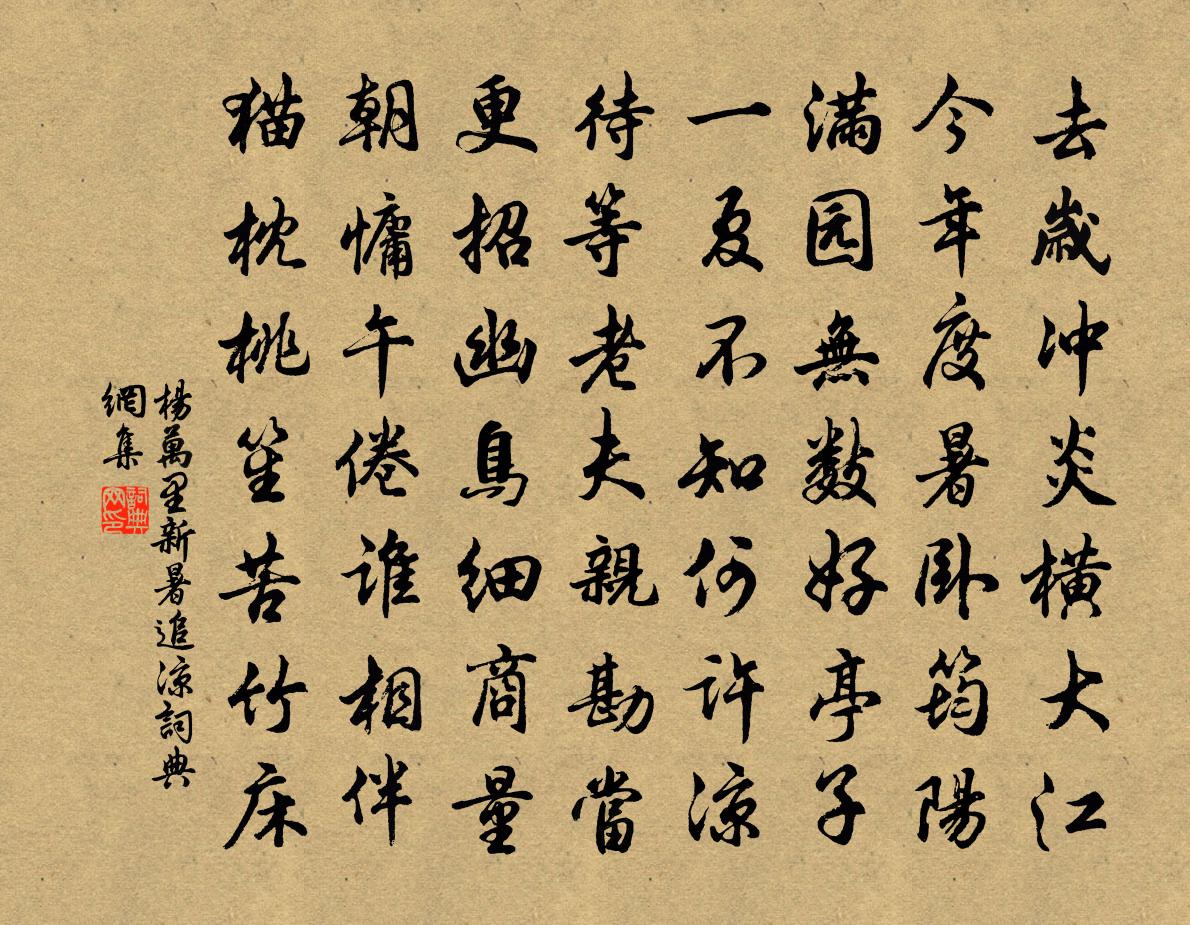 去歲冲炎橫大江
今年度暑卧筠陽
满园無數好亭子
一夏不知何許凉
待等老夫親勘當
更招幽鳥細商量
朝慵午倦誰相伴
猫枕桃笙苦竹床
楊萬里新暑追凉詞典
網集
詞典
网印